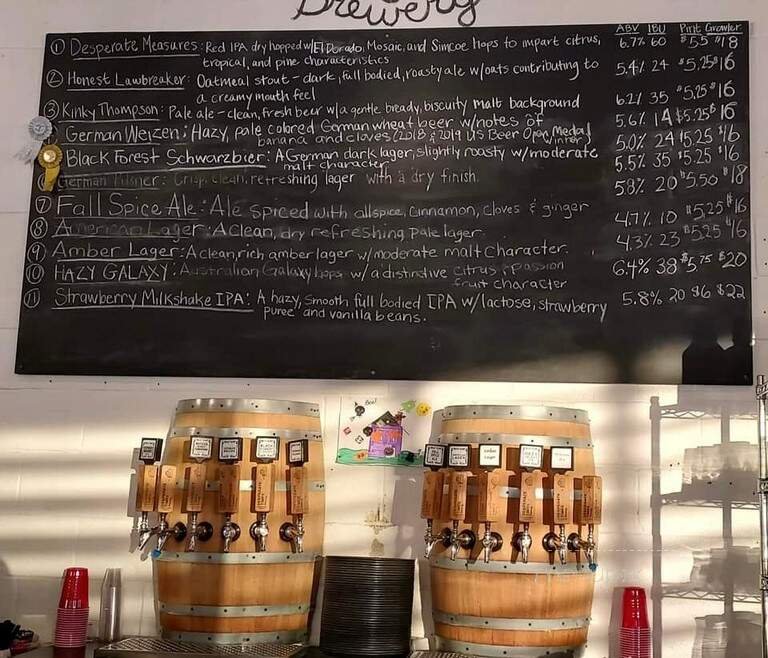 Brewery
ABV IBU Pint Growler
① Desperate Measures: Red IPA dry hopped w/El Dorado, Mosaic, and Simcoe hops to impart citrus, 6.7% 60 $5.5 $18
tropical, and pine characteristics
② Honest Lawbreaker: Oatmeal stout - dark, full bodied, roasty ale w/oats contributing to 5.4% 24 $5.25 $16
a creamy mouth feel
③ Kinky Thompson: Pale ale - clean, fresh beer w/a gentle, bready, biscuity malt background 6.2% 35 $5.25 $16
German Weizen: Hazy, pale colored German wheat beer w/notes of 5.6% 14 $5.25 $16
banana and cloves (2018 & 2019 US Beer Open Medal
Winner)
Black Forest Schwarzbier: A German dark lager, slightly roasty w/moderate 5.0% 24 $5.25 $16
malt character
German Pilsner: Crisp, clean, refreshing lager with a dry finish. 5.5% 35 $5.25 $16
⑦ Fall Spice Ale: Ale spiced with allspice, cinnamon, cloves & ginger 5.8% 20 $5.50 $18
⑧ American Lager: A clean, dry refreshing pale lager. 4.7% 10 $5.25 $16
⑨ Amber Lager: A clean, rich amber lager w/moderate malt character. 4.3% 23 $5.25 $16
⑩ HAZY GALAXY: Australian Galaxy hops w/a distinctive citrus & passion 6.4% 38 $5.75 $20
fruit character
⑪ Strawberry Milkshake IPA: A hazy, smooth full bodied IPA w/lactose, strawberry 5.8% 20 $6 $22
puree and vanilla beans.
Boo!